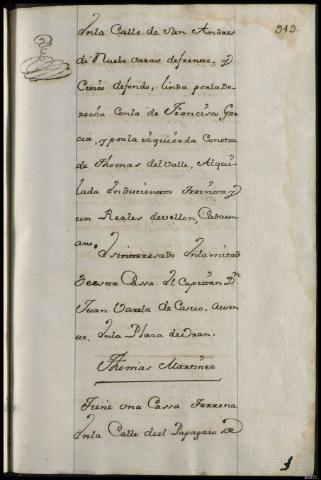 919.
Enla Calle de San Andres
de Nuebe varas defrente, y
Cinco defondo, linda porlade-
recha Conla de Francisco Gar-
cia, y porla izquierda Conotra
de Thomas del Valle, Alqui-
lada Enducientos treinta y
un Reales devellon, Cadaun
año.
Esinteresado Enlamitad
deesta Cassa El Capitan Dn.
Juan Varela de Castro, ausen-
te, Enla Plaza deOran.
Thomas Martinez
Tiene una Cassa Terrena
Enla Calle deel Papagaio de